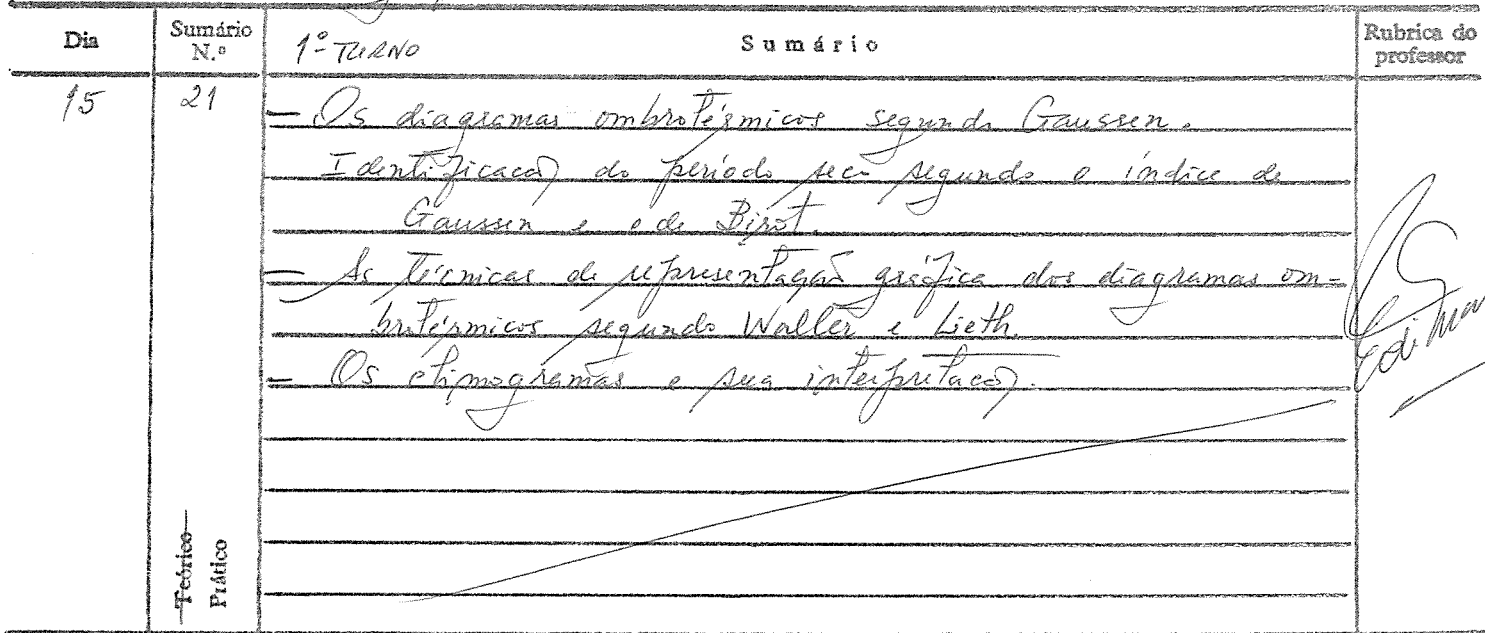 Dia
Sumário N.º
1º TURNO
Sumário
Rubrica do professor
15
21
— Os diagramas ombrotérmicos segundo Gaussen.
Identificação do período seco segundo o índice de
Gaussen e o de Birot.
— As técnicas de representação gráfica dos diagramas om-
brotérmicos segundo Walter e Lieth.
— Os climogramas e sua interpretação.
Teórico
Prático